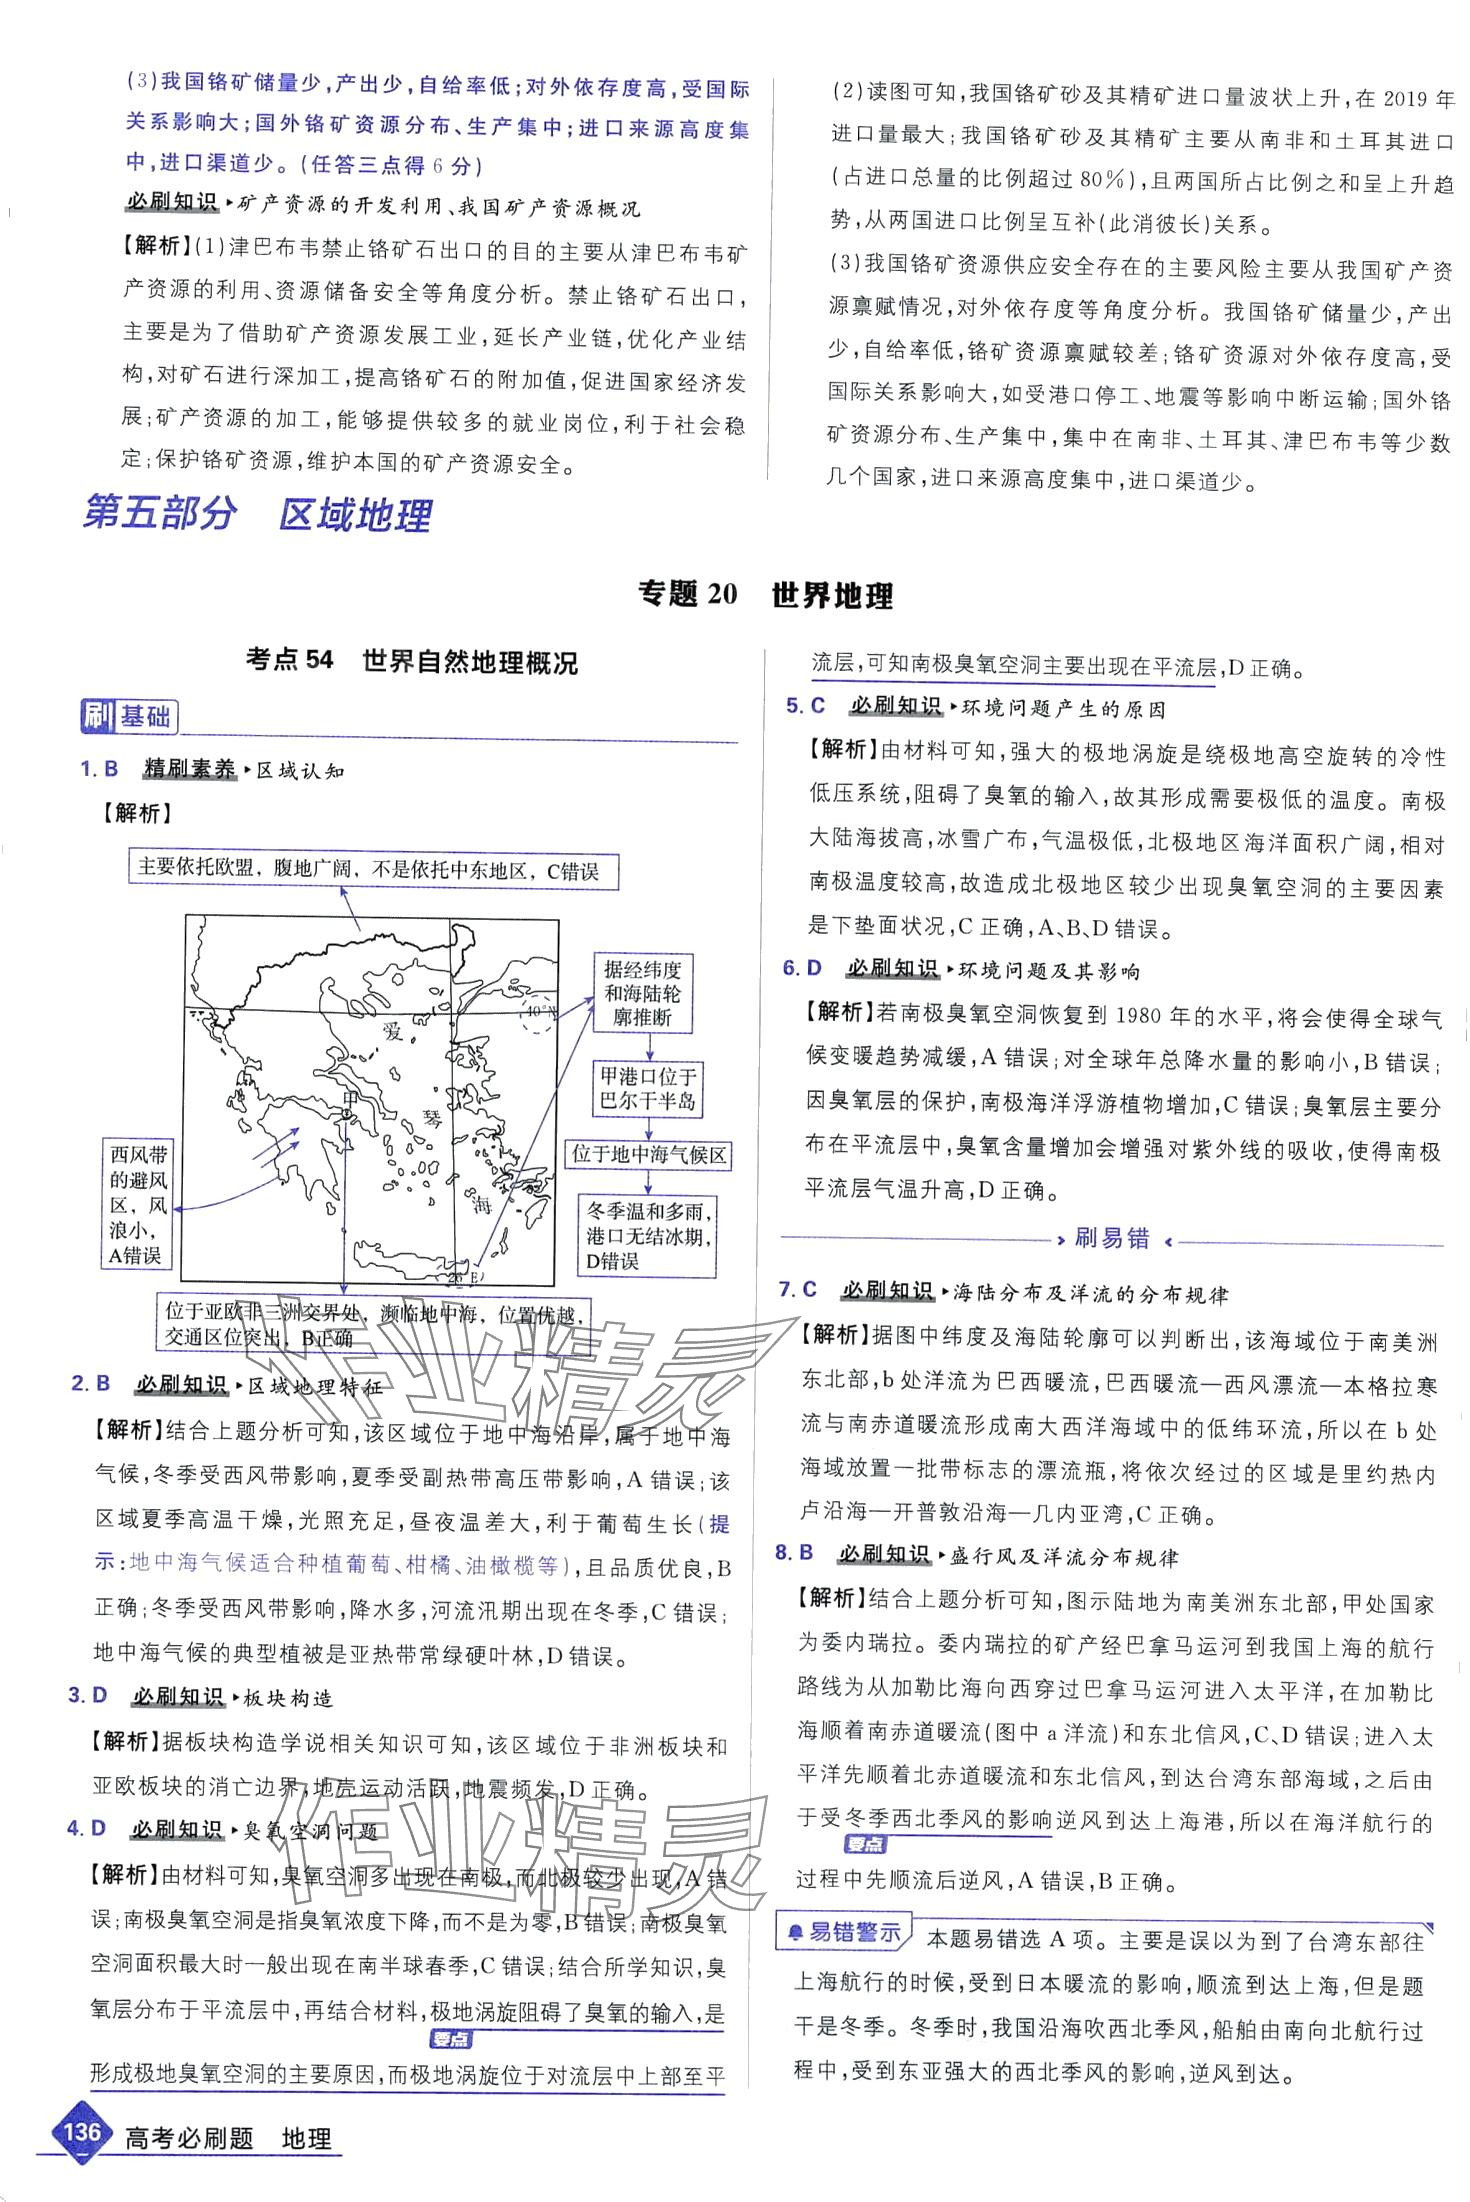 (3)我国铬矿储量少,产出少,自给率低;对外依存度高,受国际
关系影响大;国外铬矿资源分布、生产集中;进口来源高度集
中,进口渠道少。(任答三点得6分)
必刷知识▸矿产资源的开发利用、我国矿产资源概况
【解析】(1)津巴布韦禁止铬矿石出口的目的主要从津巴布韦矿
产资源的利用、资源储备安全等角度分析。禁止铬矿石出口,
主要是为了借助矿产资源发展工业,延长产业链,优化产业结
构,对矿石进行深加工,提高铬矿石的附加值,促进国家经济发
展;矿产资源的加工,能够提供较多的就业岗位,利于社会稳
定;保护铬矿资源,维护本国的矿产资源安全。
(2)读图可知,我国铬矿砂及其精矿进口量波状上升,在2019年
进口量最大;我国铬矿砂及其精矿主要从南非和土耳其进口
(占进口总量的比例超过80%),且两国所占比例之和呈上升趋
势,从两国进口比例呈互补(此消彼长)关系。
(3)我国铬矿资源供应安全存在的主要风险主要从我国矿产资
源禀赋情况,对外依存度等角度分析。我国铬矿储量少,产出
少,自给率低,铬矿资源禀赋较差;铬矿资源对外依存度高,受
国际关系影响大,如受港口停工、地震等影响中断运输;国外铬
矿资源分布、生产集中,集中在南非、土耳其、津巴布韦等少数
几个国家,进口来源高度集中,进口渠道少。
第五部分 区域地理
专题20 世界地理
考点54 世界自然地理概况
刷基础
1. B 精刷素养▸区域认知
【解析】
主要依托欧盟，腹地广阔，不是依托中东地区，C错误
据经纬度
和海陆轮
廓推断
40°N
爱
琴
海
甲
甲港口位于
巴尔干半岛
西风带
的避风
区，风
浪小，
A错误
位于地中海气候区
冬季温和多雨，
港口无结冰期，
D错误
26°E
位于亚欧非三洲交界处，濒临地中海，位置优越，
交通区位突出，B正确
2. B 必刷知识▸区域地理特征
【解析】结合上题分析可知,该区域位于地中海沿岸,属于地中海
气候,冬季受西风带影响,夏季受副热带高压带影响,A错误;该
区域夏季高温干燥,光照充足,昼夜温差大,利于葡萄生长(提
示:地中海气候适合种植葡萄、柑橘、油橄榄等),且品质优良,B
正确;冬季受西风带影响,降水多,河流汛期出现在冬季,C错误;
地中海气候的典型植被是亚热带常绿硬叶林,D错误。
3. D 必刷知识▸板块构造
【解析】据板块构造学说相关知识可知,该区域位于非洲板块和
亚欧板块的消亡边界,地壳运动活跃,地震频发,D正确。
4. D 必刷知识▸臭氧空洞问题
【解析】由材料可知,臭氧空洞多出现在南极,而北极较少出现,A错
误;南极臭氧空洞是指臭氧浓度下降,而不是为零,B错误;南极臭氧
空洞面积最大时一般出现在南半球春季,C错误;结合所学知识,臭
氧层分布于平流层中,再结合材料,极地涡旋阻碍了臭氧的输入,是
要点
形成极地臭氧空洞的主要原因,而极地涡旋位于对流层中上部至平
流层,可知南极臭氧空洞主要出现在平流层,D正确。
5. C 必刷知识▸环境问题产生的原因
【解析】由材料可知,强大的极地涡旋是绕极地高空旋转的冷性
低压系统,阻碍了臭氧的输入,故其形成需要极低的温度。南极
大陆海拔高,冰雪广布,气温极低,北极地区海洋面积广阔,相对
南极温度较高,故造成北极地区较少出现臭氧空洞的主要因素
是下垫面状况,C正确,A、B、D错误。
6. D 必刷知识▸环境问题及其影响
【解析】若南极臭氧空洞恢复到1980年的水平,将会使得全球气
候变暖趋势减缓,A错误;对全球年总降水量的影响小,B错误;
因臭氧层的保护,南极海洋浮游植物增加,C错误;臭氧层主要分
布在平流层中,臭氧含量增加会增强对紫外线的吸收,使得南极
平流层气温升高,D正确。
刷易错
7. C 必刷知识▸海陆分布及洋流的分布规律
【解析】据图中纬度及海陆轮廓可以判断出,该海域位于南美洲
东北部,b处洋流为巴西暖流,巴西暖流—西风漂流—本格拉寒
流与南赤道暖流形成南大西洋海域中的低纬环流,所以在b处
海域放置一批带标志的漂流瓶,将依次经过的区域是里约热内
卢沿海—开普敦沿海—几内亚湾,C正确。
8. B 必刷知识▸盛行风及洋流分布规律
【解析】结合上题分析可知,图示陆地为南美洲东北部,甲处国家
为委内瑞拉。委内瑞拉的矿产经巴拿马运河到我国上海的航行
路线为从加勒比海向西穿过巴拿马运河进入太平洋,在加勒比
海顺着南赤道暖流(图中a洋流)和东北信风,C、D错误;进入太
平洋先顺着北赤道暖流和东北信风,到达台湾东部海域,之后由
于受冬季西北季风的影响逆风到达上海港,所以在海洋航行的
要点
过程中先顺流后逆风,A错误,B正确。
易错警示 本题易错选A项。主要是误以为到了台湾东部往
上海航行的时候,受到日本暖流的影响,顺流到达上海,但是题
干是冬季。冬季时,我国沿海吹西北季风,船舶由南向北航行过
程中,受到东亚强大的西北季风的影响,逆风到达。
作业精灵
作业精灵
136 高考必刷题 地理